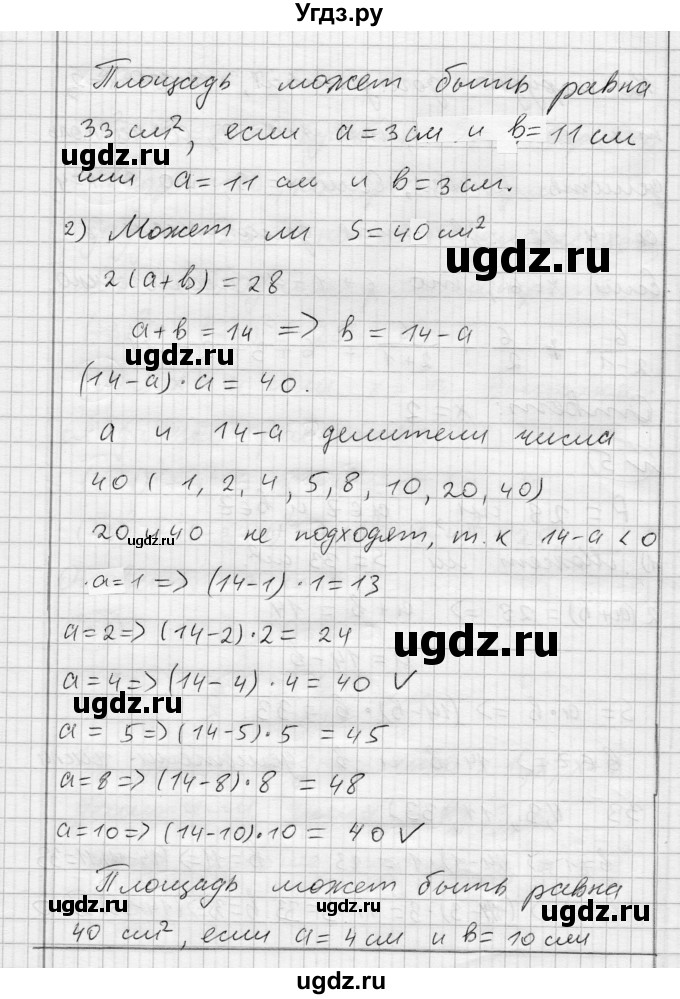 Угдз.ру
Площадь может быть равна
33 см², если a = 3 см и b = 11 см
ugdz.ru
или a = 11 см и b = 3 см.
2) Может ли S = 40 см²
ugdz.ru
2(a+b) = 28
a+b = 14 => b = 14-a
ugdz.ru
(14-a)·a = 40.
a и 14-a делители числа
40 (1, 2, 4, 5, 8, 10, 20, 40)
ugdz.ru
20 и 40 не подходят, т.к 14-a < 0
a=1 => (14-1)·1=13
a=2 => (14-2)·2= 24
ugdz.ru
a=4 => (14-4)·4= 40 ✓
ugdz.ru
a= 5 => (14-5)·5 = 45
a=8 => (14-8)·8 = 48
a=10 => (14-10)·10 = 40 ✓
Площадь может быть равна
ugdz.ru ugdz.ru ugdz.ru
40 см², если a= 4 см и b= 10 см
ugdz.ru ugdz.ru
ugdz.ru